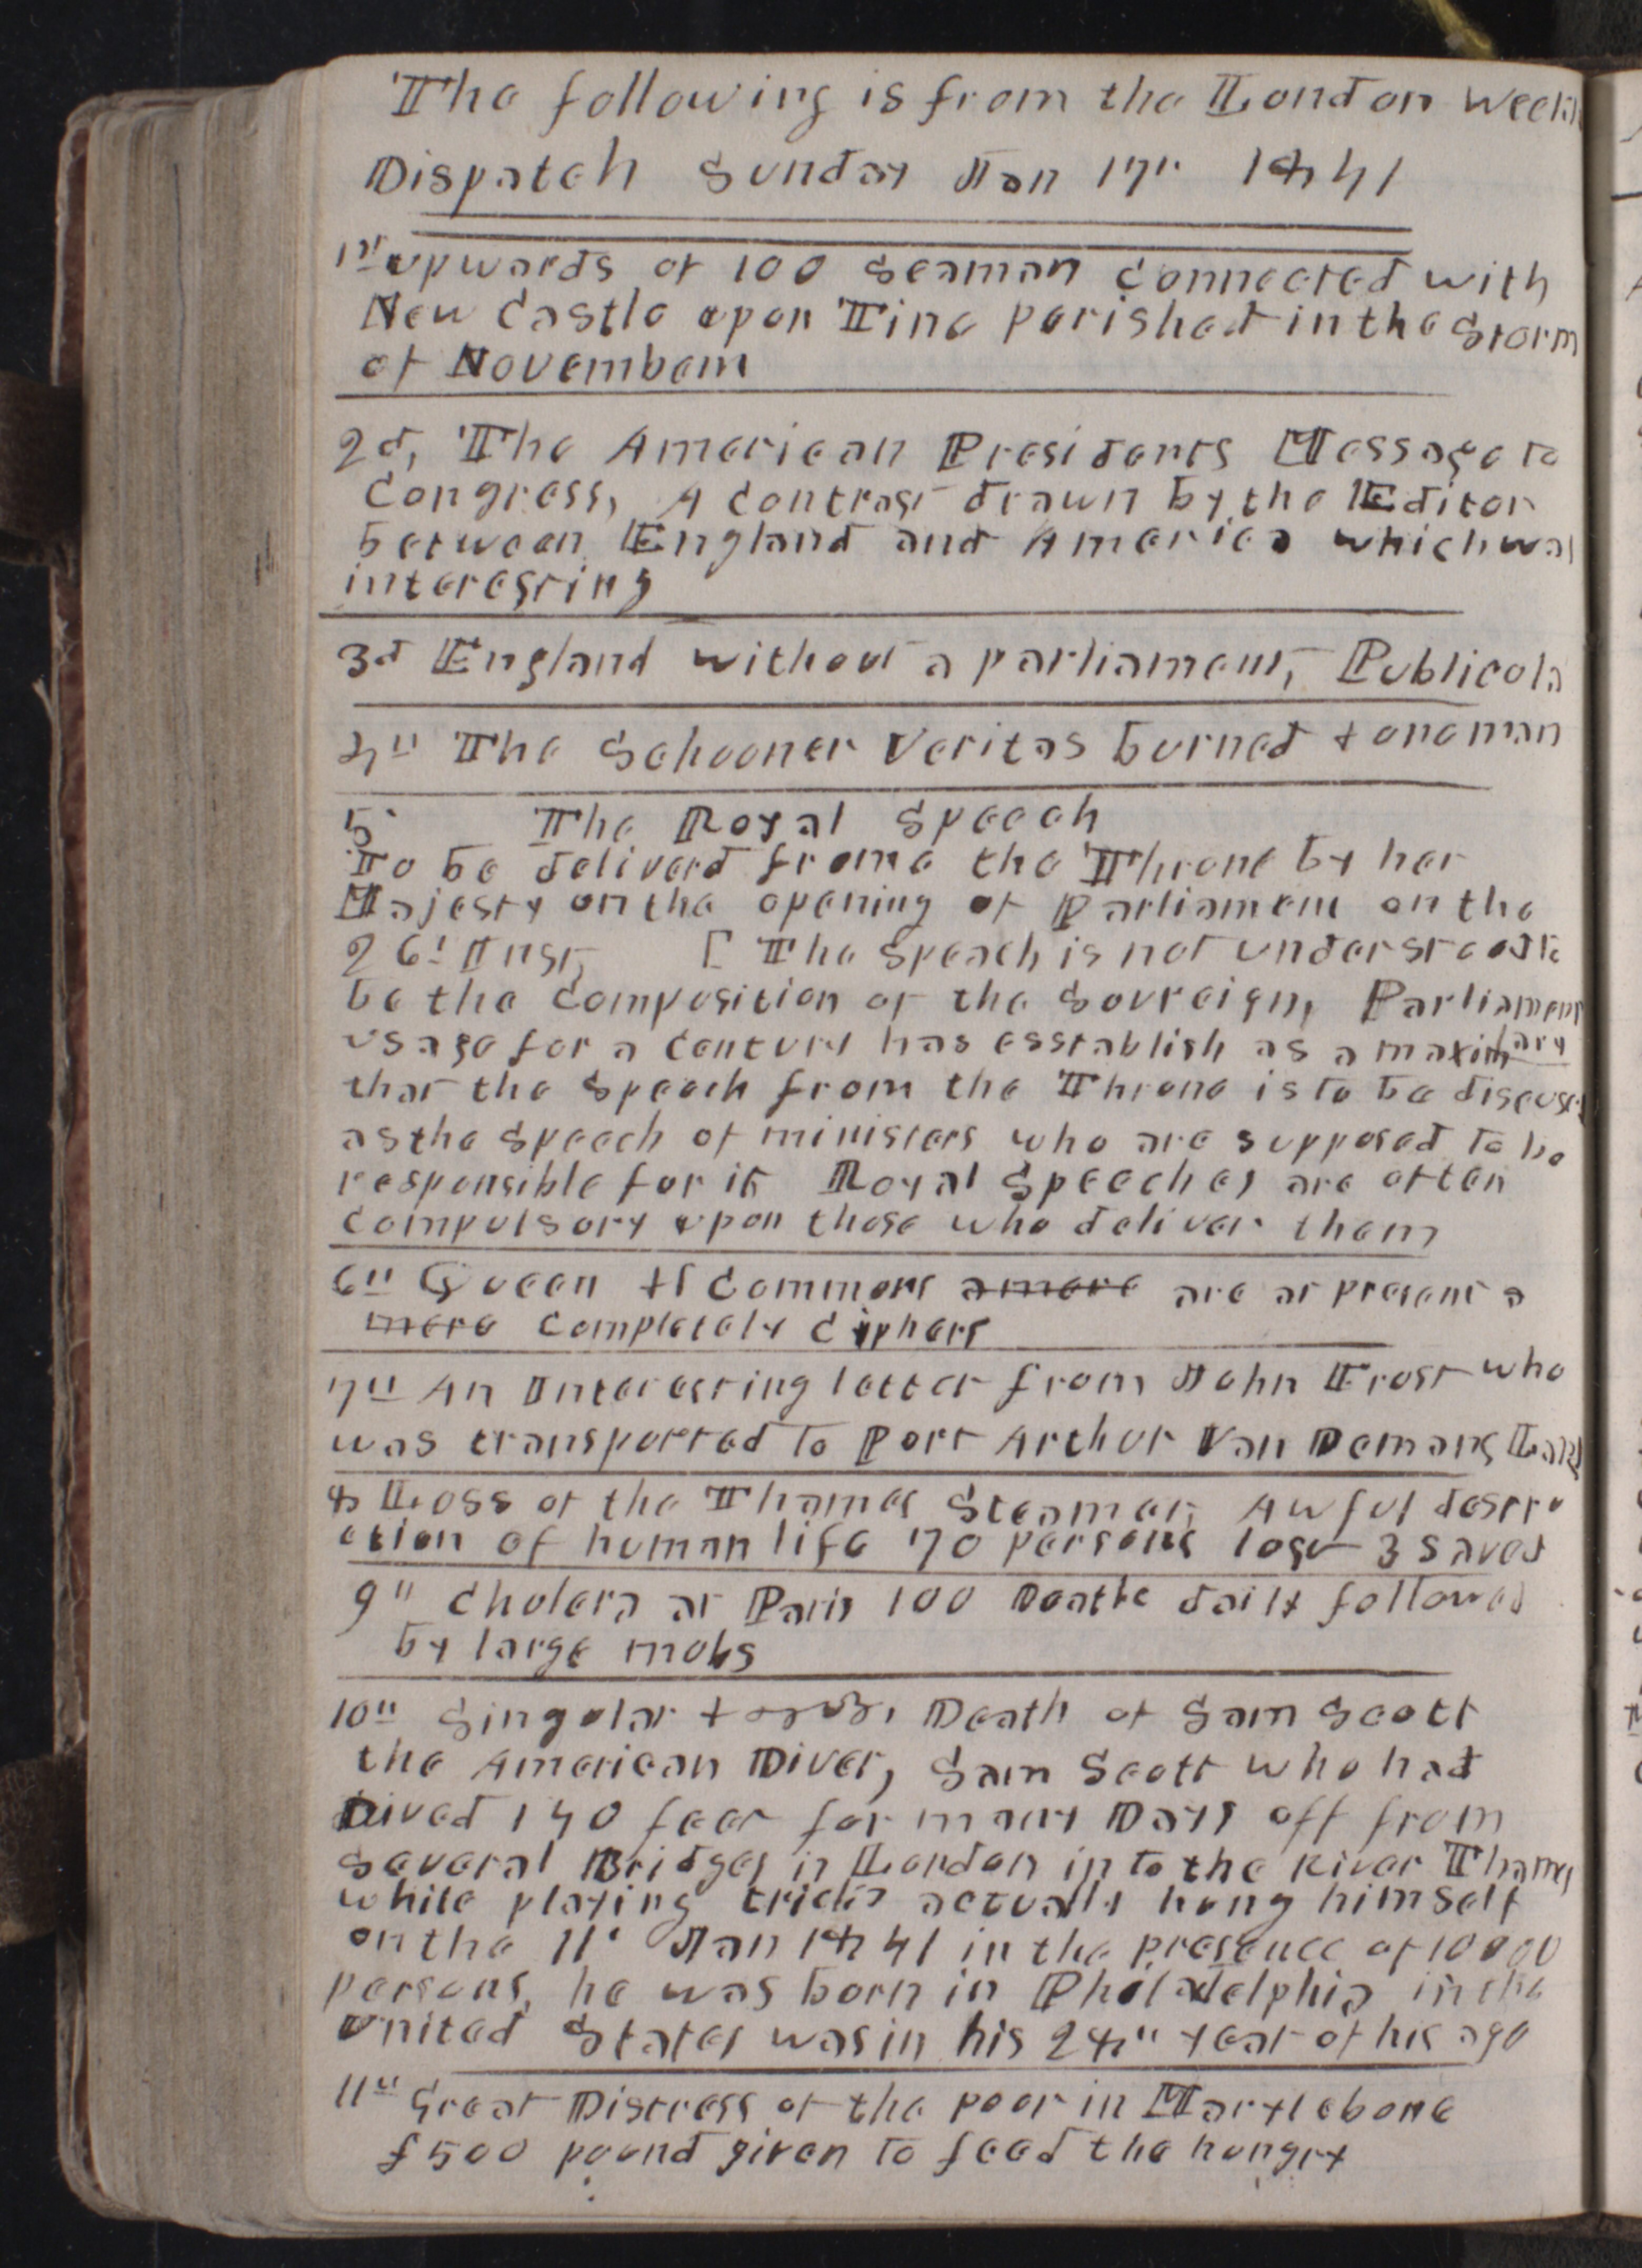 The following is from the London Weekly
Dispatch Sunday Jan 17" 1841
1st upwards of 100 Seaman Connected with
New Castle upon Tine perished in the Storm
of November
2d, The American Presidents Message to
Congress, A Contrast drawn by the Editor
between England and America which was
interesting
3d England without a parliament, Publicola
4" The Schooner Veritas burned & one man
5 The Royal Speech
To be deliverd frome the Throne by her
Majesty on the opening of Parliament on the
26: Inst, [ The Speach is not understood to
be the Composition of the Sovreign, Parliament
ary
usage for a Century has esstablish as a maxim
that the Speach from the Throne is to be discused
as the Speech of ministers who are supposed to be
responsible for it Royal Speeches are often
Compulsory upon those who deliver them
6" Queen & Commons a mere are at present a
mere Completely Ciphers
7" An Interesting letter from John Frost who
was transported to Port Arthur Van Demans Land
8 Loss of the Thames Steamer, Awful destru
ction of human life 70 persons lost 3 saved
9" Cholera at Paris 100 Deaths daily followed
by large mobs
10" Singular & Death of Sam Scott
the American Diver, Sam Scott who had
Dived 140 feet for many Days off from
Several Bridges in London into the River Thames
while playing tricks actually hung himself
on the 11" Jan 1841 in the presence of 10000
persons, he was born in Philadelphia in the
United States was in his 28" year of his age
11" Great Distress of the poor in Marylebone
£500 pound given to feed the hungry